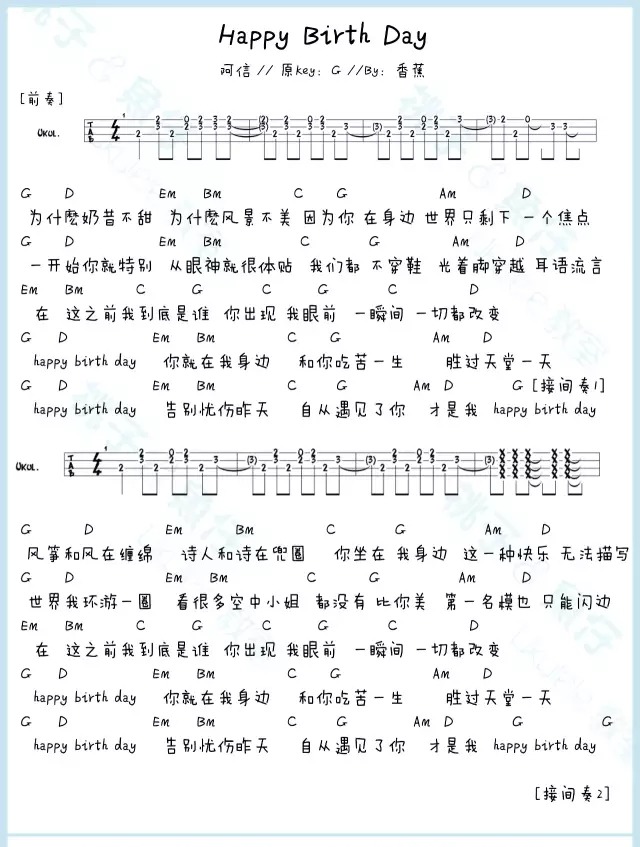 Happy Birth Day
阿信 // 原key: G //By: 香蕉
[前奏]
UKUL.
G D Em Bm C G Am D
为什麽奶昔不甜 为什麽风景不美 因为你 在身边 世界只剩下 一个焦点
G D Em Bm C G Am D
一开始你就特别 从眼神就很体贴 我们都 不穿鞋 光着脚穿越 耳语流言
Em Bm C G C G C D
在 这之前我到底是谁 你出现 我眼前 一瞬间 一切都改变
G D Em Bm C G Am D
happy birth day 你就在我身边 和你吃苦一生 胜过天堂一天
G D Em Bm C G Am D G [接间奏1]
happy birth day 告别忧伤昨天 自从遇见了你 才是我 happy birth day
UKUL.
G D Em Bm C G Am D
风筝和风在缠绵 诗人和诗在兜圈 你坐在 我身边 这一种快乐 无法描写
G D Em Bm C G Am D
世界我环游一圈 看很多空中小姐 都没有 比你美 第一名模也 只能闪边
Em Bm C G C G C D
在 这之前我到底是谁 你出现 我眼前 一瞬间 一切都改变
G D Em Bm C G Am D
happy birth day 你就在我身边 和你吃苦一生 胜过天堂一天
G D Em Bm C G Am D G G
happy birth day 告别忧伤昨天 自从遇见了你 才是我 happy birth day
[接间奏2]